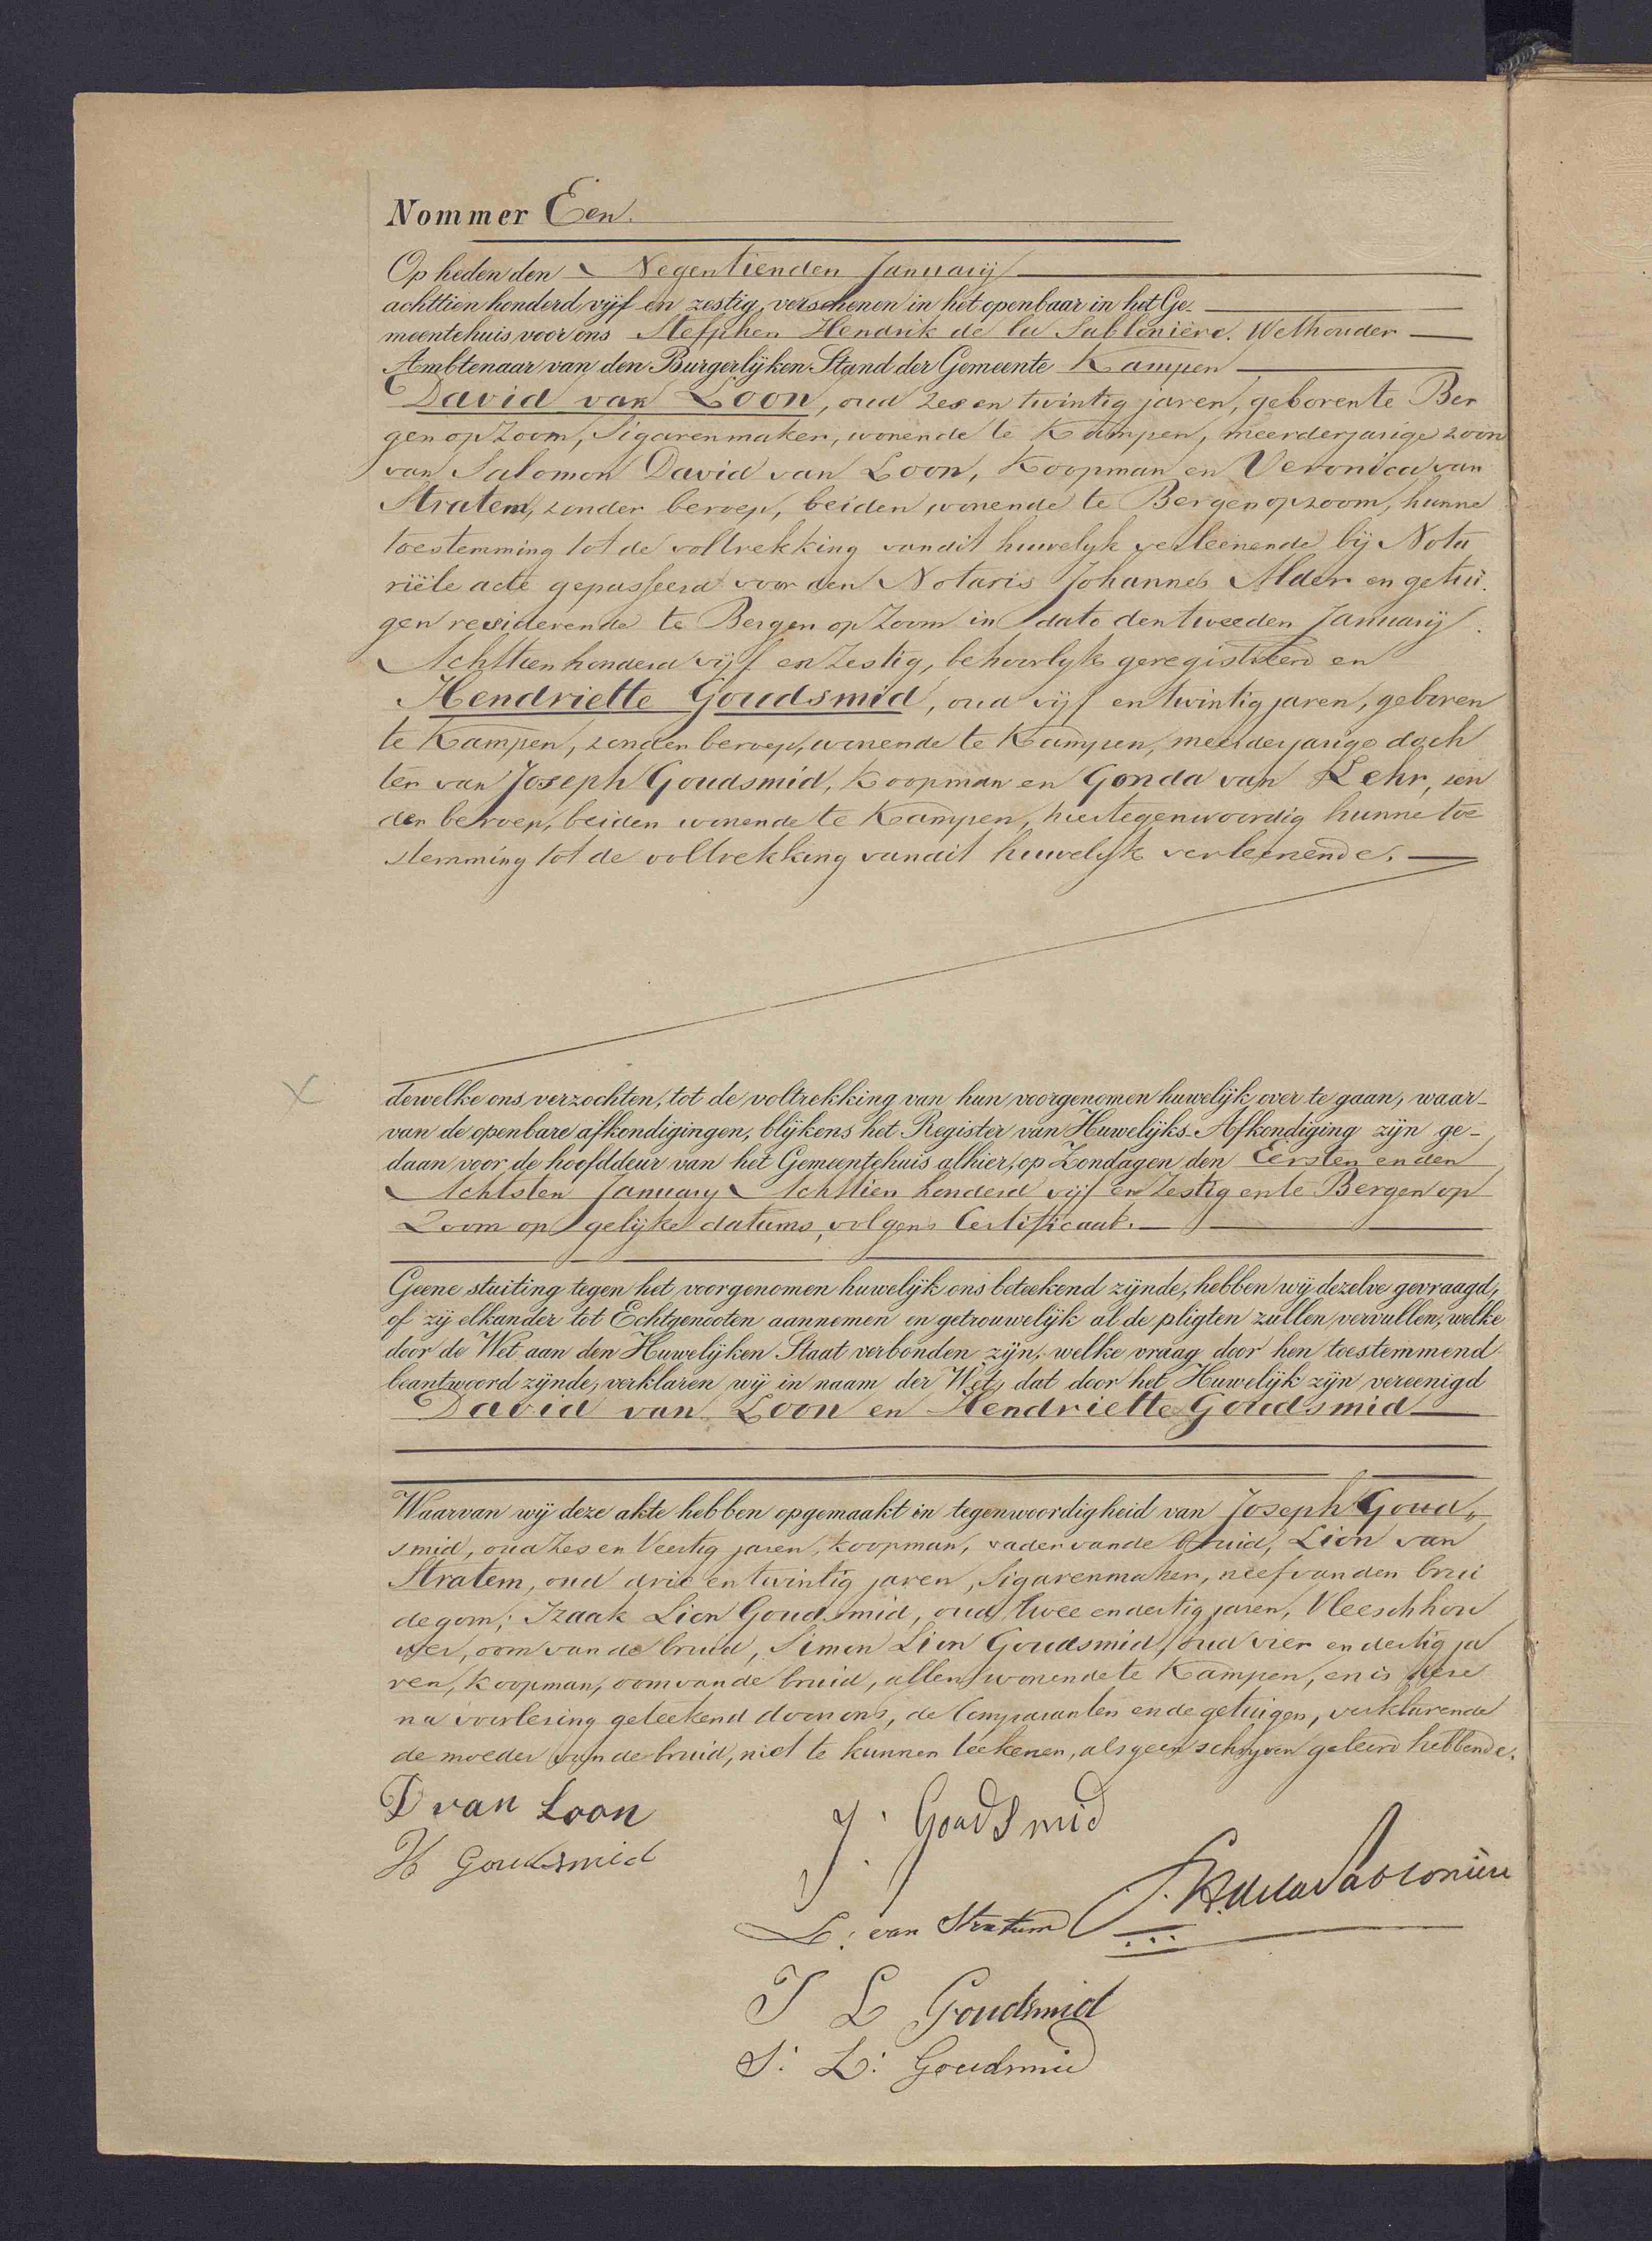 Nommer Een.
Op heden den Negentienden Januarij
achttien honderd vijf en zestig, verschenen in het openbaar in het Ge-
meentehuis voor ons Steffhen Hendrik de la Sablonière. Wethouder
Ambtenaar van den Burgerlijken Stand der Gemeente Kampen
David van Loon, oud zes en twintig jaren, geboren te Ber
gen op Zoom, Sigarenmaker, wonende te Kampen, meerderjarige zoon
van Salomon David van Loon, Koopman en Veronica van
Stratem, zonder beroep, beiden wonende te Bergen op zoom, hunne
toestemming tot de voltrekking van dit huwelyk verleenende bij Nota
riële acte gepasseerd voor den Notaris Johannes Alder en getui
gen residerende te Bergen op Zoom in dato den tweeden Januarij
Achttien honderd vijf en Zestig, behoorlyk geregistreerd en
Hendriette Goudsmid, oud vijf en twintig jaren, geboren
te Kampen, zonder beroep, wonende te Kampen, meerderjarige doch
ter van Joseph Goudsmid, Koopman en Gonda van Lehr, zon
der beroep, beiden wonende te Kampen, hiertegenwoordig hunne toe
stemming tot de voltrekking van dit huwelyk verleenende.
dewelke ons verzochten, tot de voltrekking van hun voorgenomen huwelijk over te gaan, waar-
van de openbare afkondigingen, blijkens het Register van Huwelijks-Afkondiging zijn ge-
daan voor de hoofddeur van het Gemeentehuis alhier, op Zondagen den Eersten en den
Achtsten January Achttien honderd vijf en Zestig en te Bergen op
Zoom op gelijke datums, volgens Certificaat.
Geene stuiting tegen het voorgenomen huwelijk ons beteekend zijnde, hebben wij dezelve gevraagd,
of zij elkander tot Echtgenooten aannemen en getrouwelijk al de pligten zullen vervullen, welke
door de Wet aan den Huwelijken Staat verbonden zijn, welke vraag door hen toestemmend
beantwoord zijnde, verklaren wij in naam der Wet, dat door het Huwelijk zijn vereenigd
David van Loon en Hendriette Goudsmid
Waarvan wij deze akte hebben opgemaakt in tegenwoordigheid van Joseph Goud„
smid, oud Zes en Veertig jaren, koopman, vader van de bruid, Lion van
Stratem, oud drie en twintig jaren, Sigarenmaker, neef van den brui
degom; Izaak Lion Goudsmid, oud twee en dertig jaren, Vleeschhou
wer, oom van de bruid, Simon Lion Goudsmid, oud vier en dertig ja
ren, koopman, oom van de bruid, allen wonende te Kampen, en is deze
na voorlesing geteekend door ons, de Comparanten en de getuigen, verklarende
de moeder van de bruid, niet te kunnen teekenen, als geen schryven geleerd hebbende.
D van Loon
J. Goudsmid
H Goudsmid
S. H. de la Sablonière
L: van Stratum
I L Goudsmid
S: L: Goudsmid